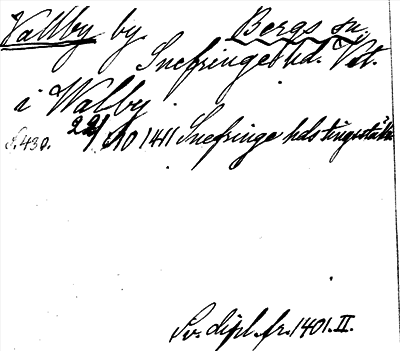 Vallby by. Bergs sn.
Snefringe hd. Vstl.
i Walby
S. 430. 22/10 1411 Snefringe hds tingsställe
Sv. dipl. fr. 1401. II.